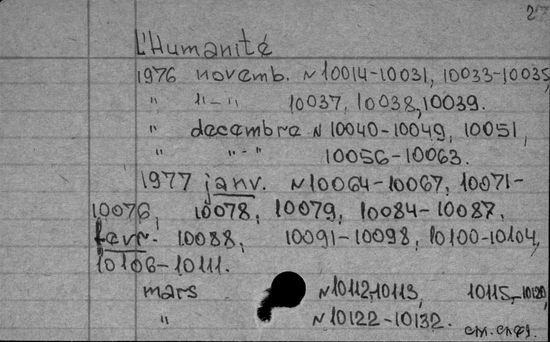 27
L'Humanité
1976 novemb. N 10014-10031, 10033-10035,
" "-" 10037, 10038, 10039.
" decembre N 10040-10049, 10051,
" "-" 10056-10063.
1977 janv. N 10064-10067, 10071-
10076, 10078, 10079, 10084-10087,
fevr. 10088, 10091-10098, 10100-10104,
10106-10111.
mars N 10112,10113, 10115-10120,
" N 10122-10132. см. след.